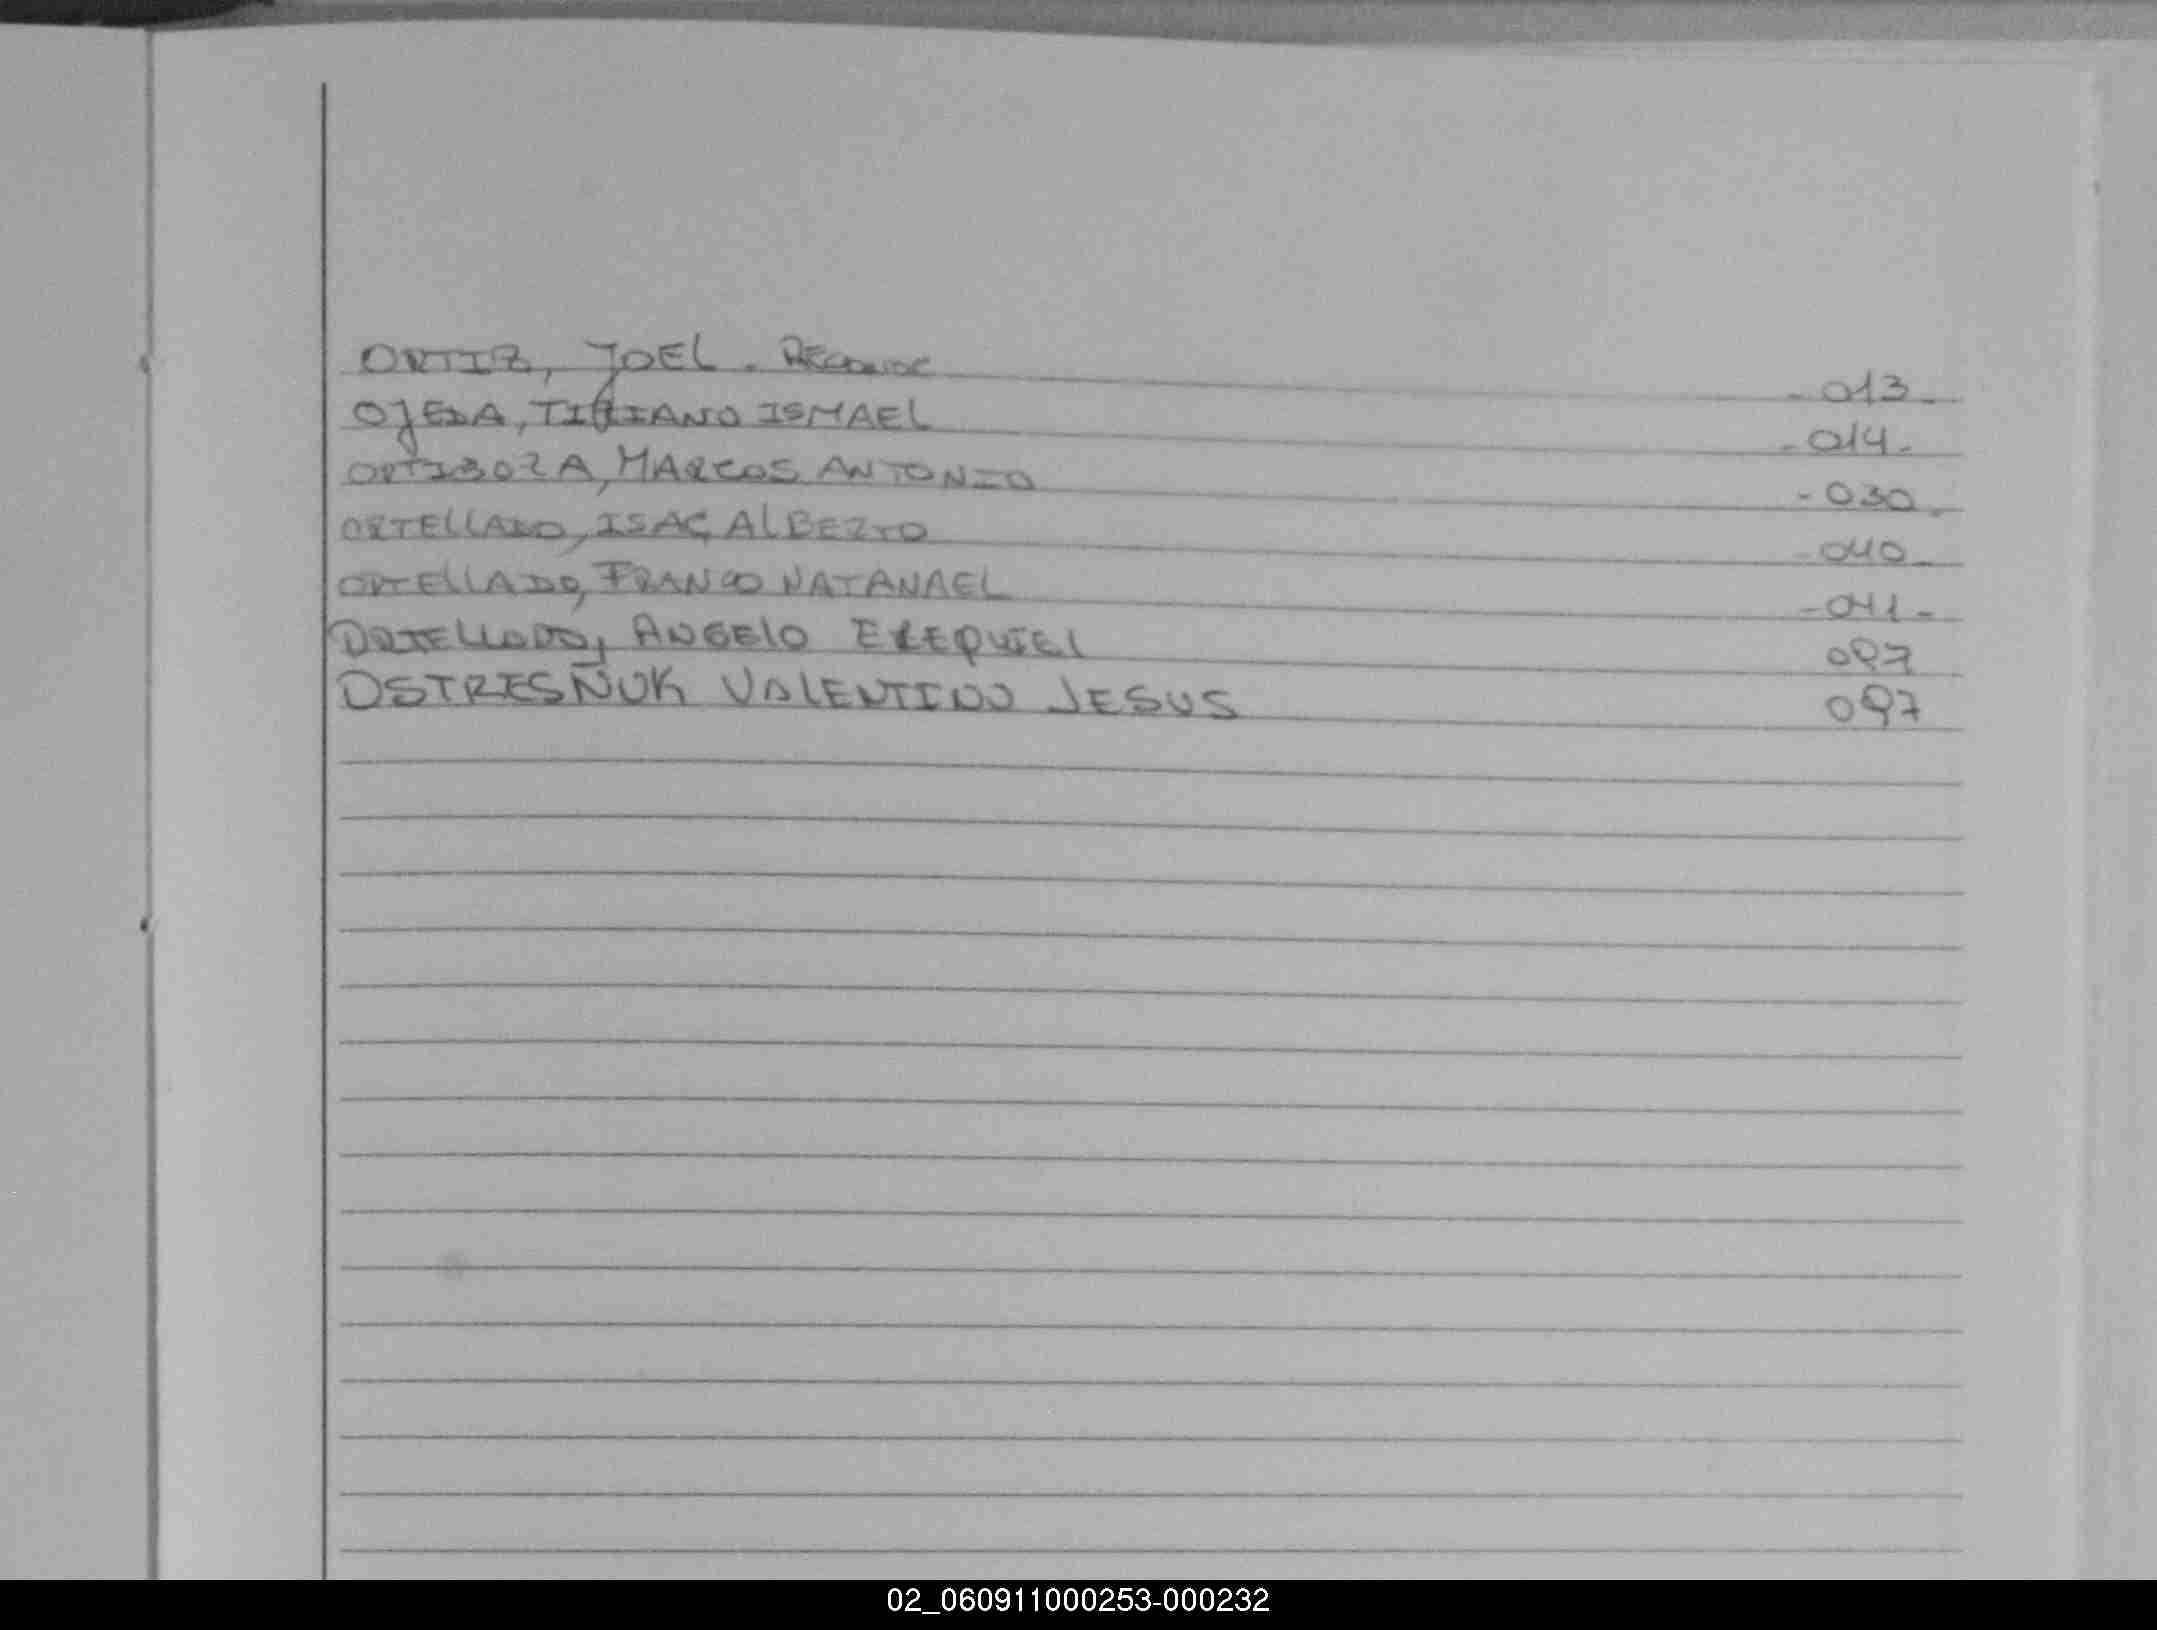 ORTIZ, JOEL.
- 013 -
OJEDA, TIZIANO ISMAEL
- 014 -
ORTIBOZA, MARCOS ANTONIO
- 030 -
ORTELLADO, ISAC ALBERTO
- 040 -
ORTELLADO, FRANCO NATANAEL
- 041 -
ORTELLADO, ANGELO EZEQUIEL
097
OSTRESÑUK VALENTINO JESUS
097
02_060911000253-000232